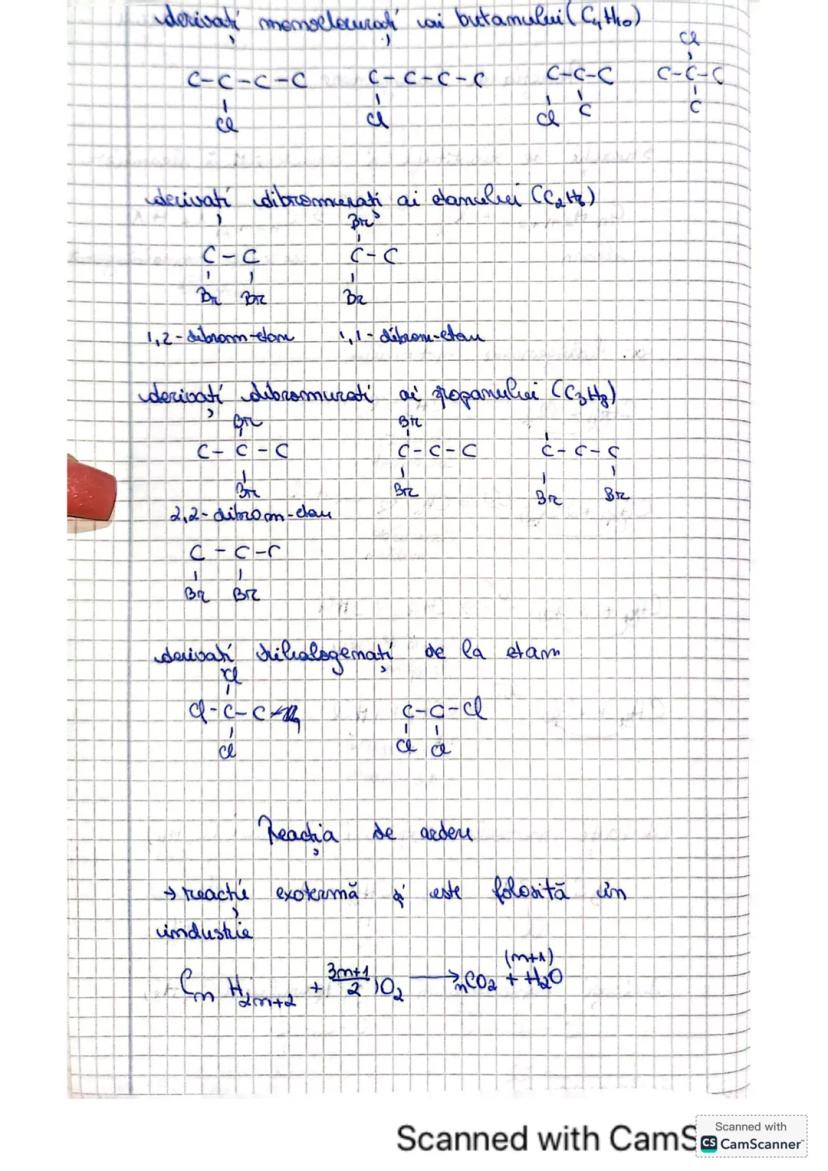 derivați monoclorurați ai butanului (C4H10)
Cl
C-C-C-C C-C-C-C C-C-C C-C-C
Cl Cl Cl C C
derivați dibromurați ai etanului (C2H6)
Br
C-C C-C
Br Br Br
1,2-dibrom-etan 1,1-dibrom-etan
derivați dibromurați ai propanului (C3H8)
Br Br
C-C-C C-C-C C-C-C
Br Br Br Br
2,2-dibrom-etan
C-C-C
Br Br
derivați trihalogenați de la etan
Cl
Cl-C-C C-C-Cl
Cl Cl Cl
Reacția de ardere
→ reacție exotermă și este folosită în
industrie
(n+1)
CnH2n+2 + 3n+1/2 )O2 → nCO2 + H2O
Scanned with CamS
Scanned with
CS CamScanner